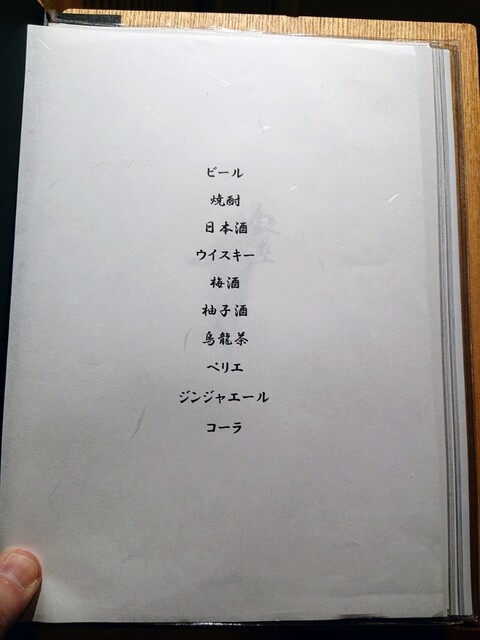 ビール
焼酎
日本酒
ウイスキー
梅酒
柚子酒
烏龍茶
ペリエ
ジンジャエール
コーラ